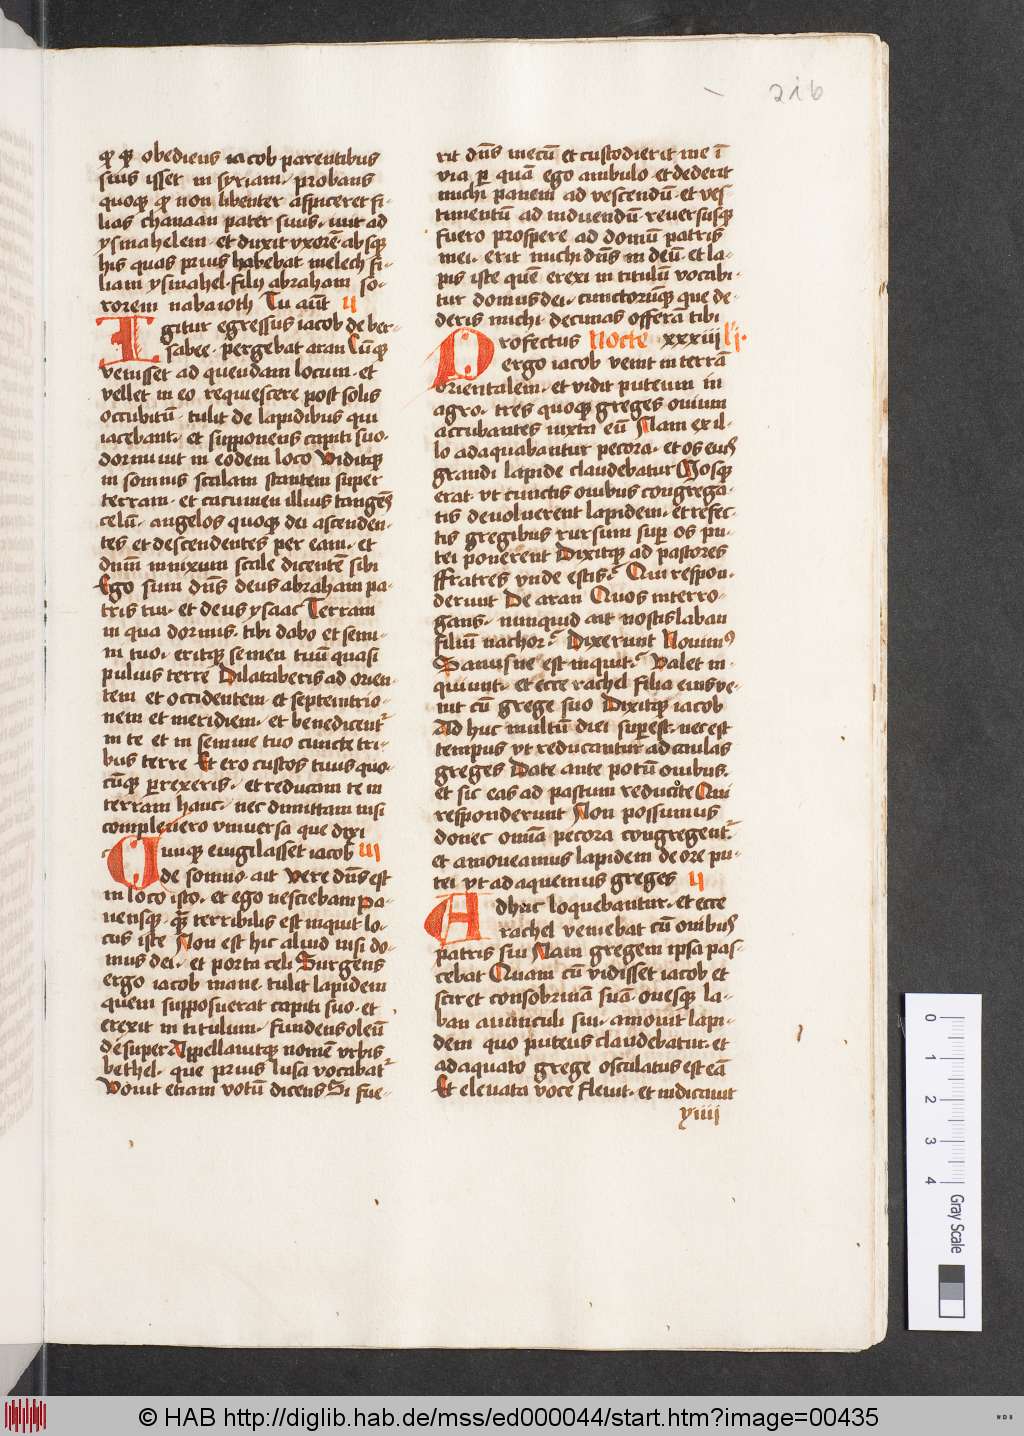 216
ꝙ ꝙ obediens iacob parentibus
suis isset in syriam · probans
quoqꝫ ꝙ non libenter aspiceret fi-
lias chanaan pater suus · iuit ad
ysmahelem · et duxit vxorē · absqꝫ
his quas prius habebat melech fi-
liam ysmahel · filij abraham so-
rorem nabaioth Tu aūt ij
Igitur egressus iacob de ber-
sabee · pergebat aran Cūqꝫ
venisset ad quendam locum · et
vellet in eo requiescere post solis
occubitū · tulit de lapidibus qui
iacebant · et supponens capiti suo ·
dormiuit in eodem loco Viditqꝫ
in somnis scalam stantem super
terram · et cacumen illius tangēs
celū · angelos quoqꝫ dei ascenden-
tes et descendentes per eam · et
dnm̄ innixum scale dicentē sibi
Ego sum dn̄s deus abraham pa-
tris tui · et deus ysaac Terram
in qua dormis · tibi dabo et semi-
ni tuo · eritqꝫ semen tuū quasi
puluis terre Dilataberis ad orien-
tem et occidentem · et septemtrio-
nem et meridiem · et benedicent᷑
in te et in semine tuo cuncte tri-
bus terre Et ero custos tuus quo-
cūqꝫ ꝑrexeris · et reducam te in
terram hanc · nec dimittam nisi
compleuero vniuersa que dixi
Cumqꝫ euigilasset iacob iij
de somno · ait Vere dn̄s est
in loco isto · et ego nesciebam Pa-
uensqꝫ · qm̄ terribilis est inquit lo-
cus iste Non est hic aliud nisi do-
mus dei · et porta celi Surgens
ergo iacob mane · tulit lapidem
quem supposuerat capiti suo · et
erexit in titulum · fundens oleū
desuper Appellauitqꝫ nomē vrbis
bethel · que prius lusa vocabat᷑
Vouit etiam votū dicens Si fue-
rit dn̄s mecū et custodierit me ī
via ꝑ quā ego ambulo · et dederit
michi panem ad vescendū · et ves
timentū ad induendū · reuersusqꝫ
fuero prospere ad domū patris
mei · erit michi dn̄s in deū · et la-
pis iste quē erexi in titulū vocabi-
tur domus dei · cunctorūqꝫ que de-
deris michi · decimas offerā tibi
Profectus Nocte xxxiij l' j ·
ergo iacob venit in terrā
orientalem · et vidit puteum in
agro · tres quoqꝫ greges ouium
accubantes iuxta eū Nam ex il-
lo adaquabantur pecora · et os eius
grandi lapide claudebatur Mosqꝫ
erat · vt cunctis ouibus congrega-
tis deuoluerent lapidem · et refec-
tis gregibus rursum suꝑ os pu-
tei ponerent Dixitqꝫ ad pastores
ffratres vnde estis? Qui respon-
derunt De aran Quos interro-
gans · nunquid ait nostis laban
filiū nachor? Dixerunt Nouimꝰ
Sanusne est inquit? Valet in-
quiunt · et ecce rachel filia eius ve-
nit cū grege suo Dixitqꝫ iacob
Ad huc multū diei suꝑest · nec est
tempus vt reducantur ad caulas
greges Date ante potū ouibus ·
et sic eas ad pastum reducite Qui
responderunt Non possumus
donec omīa pecora congregent᷑
et amoueamus lapidem de ore pu-
tei vt adaquemus greges ij
Adhuc loquebantur · et ecce
rachel veniebat cū ouibus
patris sui Nam gregem ipsa pas-
cebat Quam cū vidisset iacob et
sciret consobrinā suā · ouesqꝫ la-
ban auunculi sui · amouit lapi-
dem quo puteus claudebatur · et
adaquato grege osculatus est eā
Et eleuata voce fleuit · et indicauit
yiiij
0 1 2 3 4
Gray Scale
© HAB http://diglib.hab.de/mss/ed000044/start.htm?image=00435